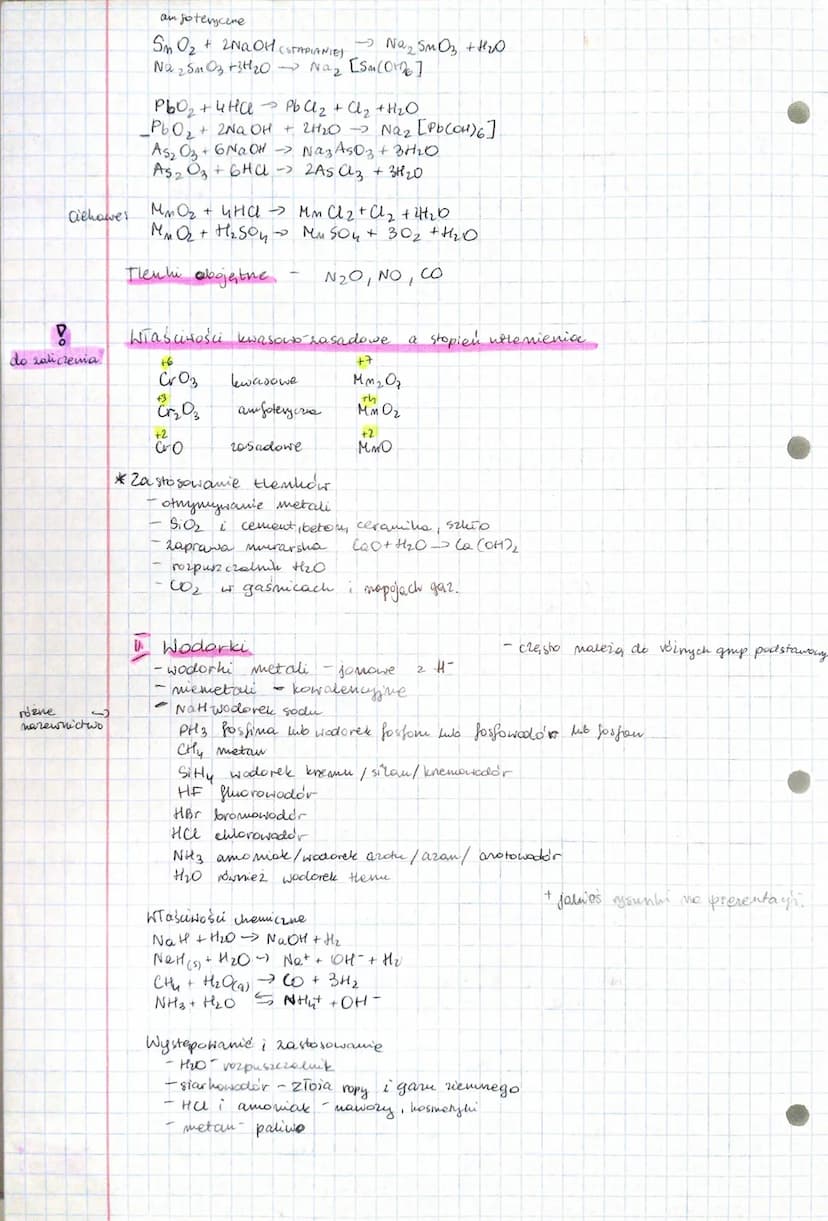 amfoteryczne
SnO₂ + 2NaOH (STAPIANIE) → Na₂SnO₃ + H₂O
Na₂SnO₃ + 3H₂O → Na₂[Sn(OH)₆]
PbO₂ + 4HCl → PbCl₂ + Cl₂ + H₂O
PbO₂ + 2NaOH + 2H₂O → Na₂[Pb(OH)₆]
As₂O₃ + 6NaOH → Na₃AsO₃ + 3H₂O
As₂O₃ + 6HCl → 2AsCl₃ + 3H₂O
Ciekawe! MnO₂ + 4HCl → MnCl₂ + Cl₂ + 4H₂O
MnO₂ + H₂SO₄ → MnSO₄ + 3O₂ + H₂O
Tlenki obojętne - N₂O, NO, CO
! Właściwości kwasowo-zasadowe a stopień utlenienia
do zaliczenia!
+6 +7
CrO₃ kwasowe Mn₂O₇
+3 +4
Cr₂O₃ amfoteryczne MnO₂
+2 +2
CrO zasadowe MnO
* Zastosowanie tlenków
- otrzymywanie metali
- SiO₂ i cement, beton, ceramika, szkło
- zaprawa murarska CaO + H₂O → Ca(OH)₂
- rozpuszczalnik H₂O
- CO₂ w gaśnicach i napojach gaz.
II Wodorki - często należą do różnych grup podstawowy
- wodorki metali - jonowe z H⁻
- niemetali - kowalencyjne
- NaH wodorek sodu
różne nazewnictwo →
PH₃ fosfina lub wodorek fosforu lub fosfowodór lub fosfan
CH₄ metan
SiH₄ wodorek krzemu / silan / krzemowodór
HF fluorowodór
HBr bromowodór
HCl chlorowodór
NH₃ amoniak / wodorek azotu / azan / azotowodór
H₂O również wodorek tlenu
+ jakieś rysunki na prezentacji
Właściwości chemiczne
NaH + H₂O → NaOH + H₂
NaH(s) + H₂O → Na⁺ + OH⁻ + H₂
CH₄ + H₂O(g) → CO + 3H₂
NH₃ + H₂O ⇆ NH₄⁺ + OH⁻
Występowanie i zastosowanie
- H₂O - rozpuszczalnik
- siarkowodór - złoża ropy i gazu ziemnego
- HCl i amoniak - nawozy, kosmetyki
- metan - paliwo